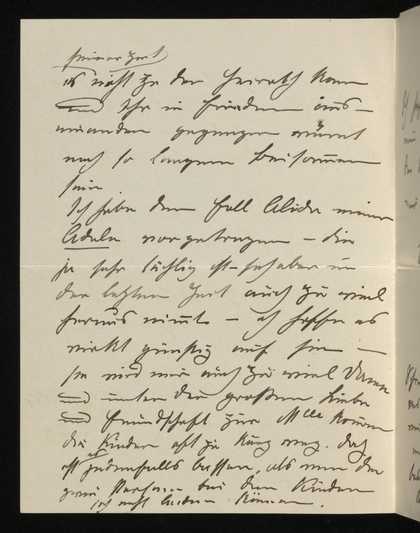 seinerzeit
es nicht zu der Heirath kam
und Ihr in Frieden aus-
einander gegangen wäret
nach so langem Beisammen
sein
Ich habe den Fall Alide meiner
Adele vorgetragen – die
ja sehr tüchtig ist – sich aber in
der letzten Zeit auch zu viel
heraus nimmt – ich hoffe es
wirkt günstig auf sie –
sie wird mir auch zu viel Dame
und unter der großen Liebe
und Freundschaft zur Mlle kommen
die Kinder oft zu kurz weg. Daß
ist jedenfalls besser, als wenn die
zwei Personen bei den Kindern
sich nicht leiden können.